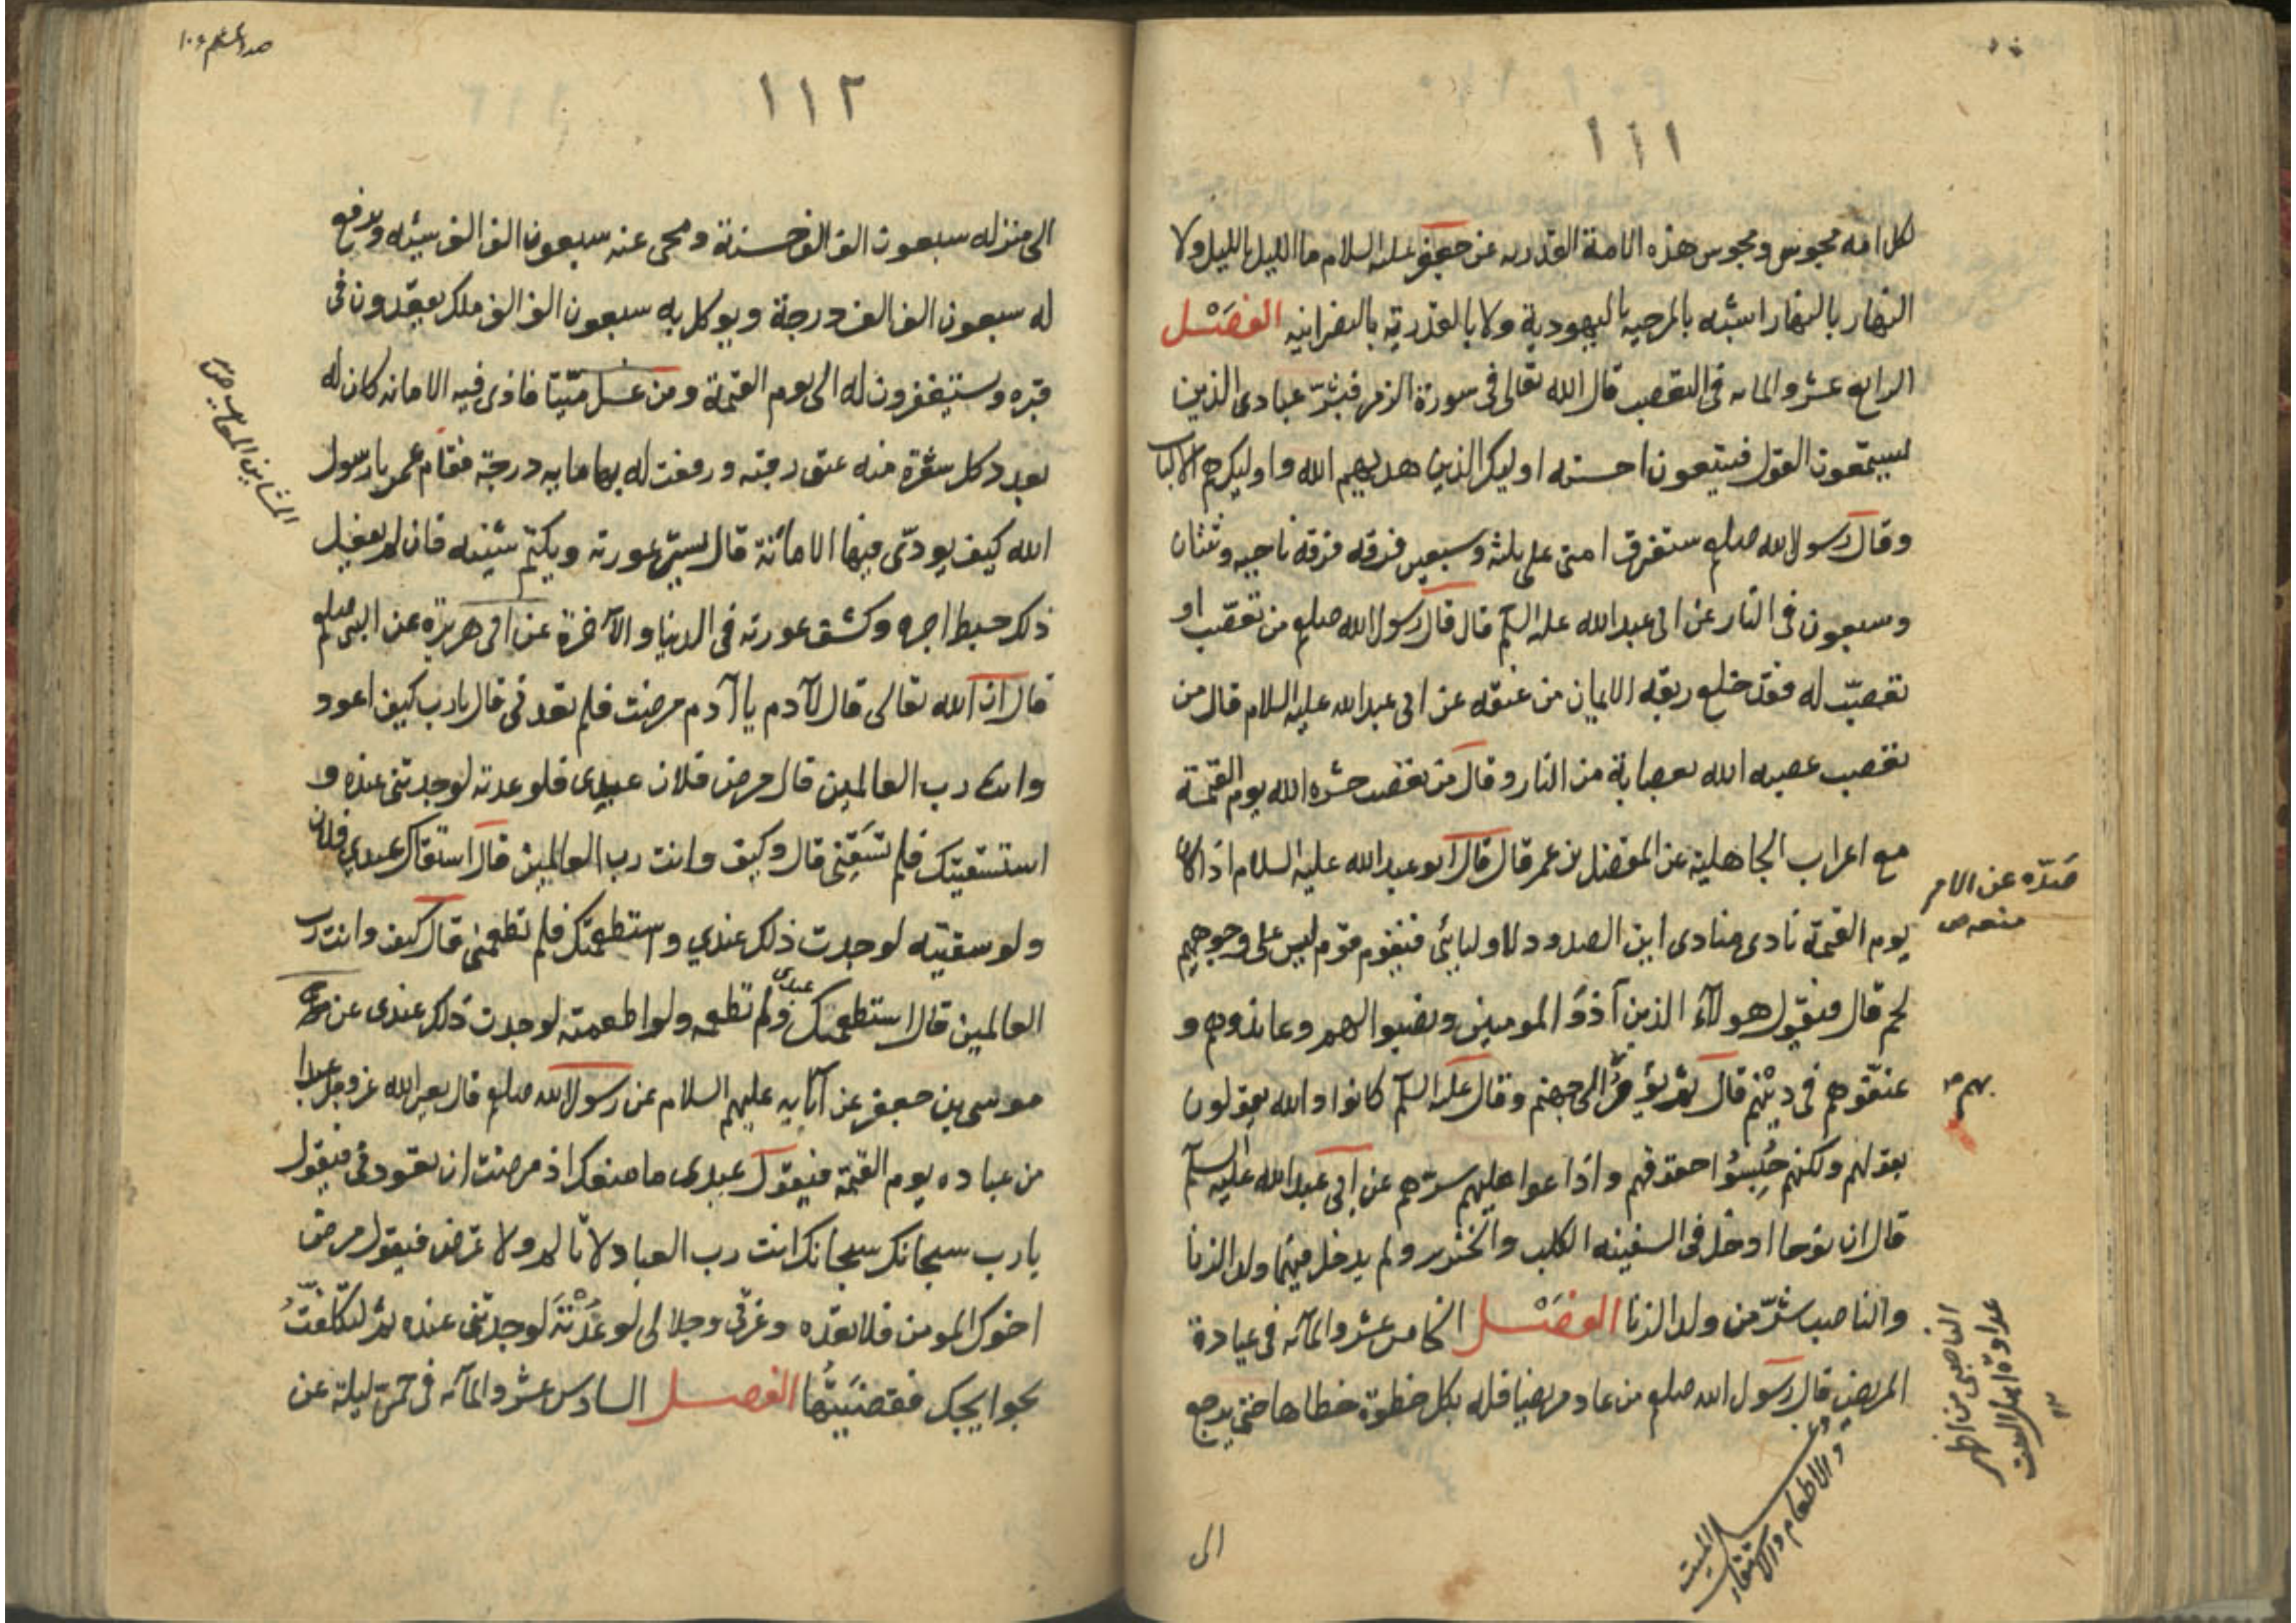 ١١١
لكل امه مجوس ومجوس هذه الامة القدريه عن جعفر عليه السلام ما الليل بالليل ولا
النهار بالنهار اشبه بالمرجيه باليهودية ولا بالقدرية بالنصرانيه الفصل
الرابع عشر والمائه فى التعصب قال الله تعالى فى سورة الزمر فبشر عبادى الذين
يستمعون القول فيتبعون احسنه اوليك الذين هديهم الله واوليك هم الالباب
وقال رسول الله صلعم ستفرق امتى على ثلثه وسبعين فرقه فرقه ناجيه وثنتان
وسبعون فى النار عن ابى عبد الله عليه السلم قال قال رسول الله صلعم من تعصب او
تعصب له فقد خلع ربقه الايمان من عنقه عن ابى عبد الله عليه السلام قال من
تعصب عصبه الله بعصابة من النار وقال من تعصب حشره الله يوم القيمة
مع اعراب الجاهلية عن المفضل بن عمر قال قال ابو عبد الله عليه السلام اذا كان
صده عن الامر
منعه ص
يوم القيمة نادى منادى اين الصدود لاوليائى فيقوم قوم ليس على وجوههم
لحم قال فيقول هولاء الذين آذوا المومنين ونصبوا لهم وعاندوهم و
عنفوهم فى دينهم قال ثم يؤمر الى جهنم وقال عليه السلم كانوا والله يقولون
بهم ص
بقولهم ولكنهم حبسوا حقوقهم واذاعوا عليهم سرهم عن ابى عبد الله عليه السلم
قال ان نوحا ادخل فى السفينه الكلب والخنزير ولم يدخل فيها ولد الزنا
والناصب شر من ولد الزنا الفصل الخامس عشر والمائه فى عيادة
الناصبى من اظهر
عداوة اهل البيت
المريض قال رسول الله صلعم من عاد مريضا فله بكل خطوة خطاها حتى يرجع
وغسل الميت
والاطعام والاستقاء
الى
١١٢
الى منزله سبعون الف الف حسنة ومحى عنه سبعون الف الف سيئه ويرفع
له سبعون الف الف درجة ويوكل به سبعون الف الف ملك يعقدون فى
قبره ويستغفرون له الى يوم القيمة ومن غسل ميتا فادى فيه الامانه كان له
الشاين المعايب ص
بعدد كل شعرة منه عتق رقبه ورفعت له بها مايه درجة فقام عمر يا رسول
الله كيف يودى فيها الامانة قال يستر عورته ويكتم شينه فان لم يفعل
ذلك حبط اجره وكشف عورته فى الدنيا والآخرة عن ابى هريرة عن النبى صلعم
قال ان الله تعالى قال لآدم يا آدم مرضت فلم تعدنى قال يا رب كيف اعود
وانت رب العالمين قال مرض فلان عبدى فلو عدته لوجدتنى عنده و
استسقيتك فلم تسقنى قال وكيف وانت رب العالمين قال استقاك عبدى فلان
ولو سقيته لوجدت ذلك عندي واستطعمتك فلم تطعمنى قال كيف وانت رب
العالمين قال استطعمك عبدى ولم تطعمه ولو اطعمته لوجدت ذلك عندى عن
موسى بن جعفر عن آبايه عليهم السلام عن رسول الله صلعم قال يعير الله عز وجل عبدا
من عباده يوم القيمة فيقول عبدى ما منعك اذ مرضت ان تعودنى فيقول
يا رب سبحانك سبحانك انت رب العباد لا تالم ولا تمرض فيقول مرض
اخوك المومن فلم تعده وعزتى وجلالى لو عدته لوجدتنى عنده ثم لتكلفت
بحوايجك فقضيتها الفصل السادس عشر والمائه فى حمى ليلة عن